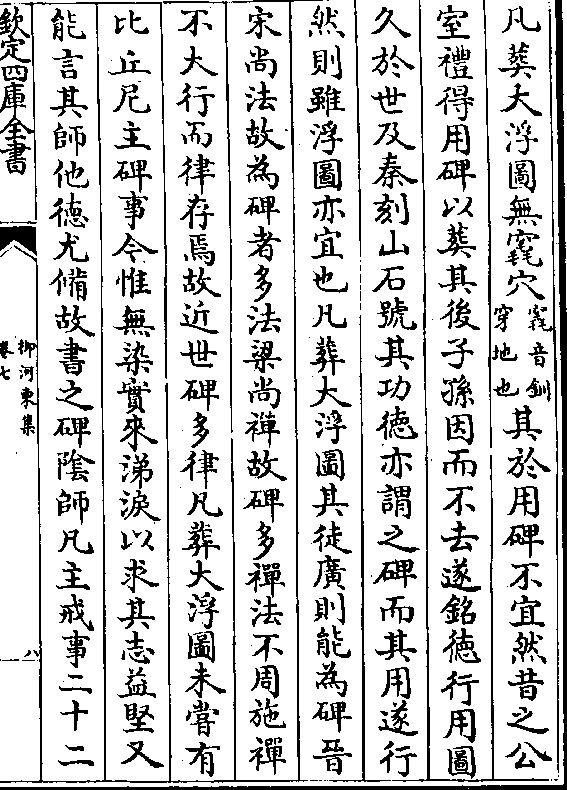 凡葬大浮圖無竁穴竁音釧穿地也其於用碑不宜然昔之公
室禮得用碑以葬其後子孫因而不去遂銘德行用圖
久於世及秦刻山石號其功德亦謂之碑而其用遂行
然則雖浮圖亦宜也凡葬大浮圖其徒廣則能為碑晉
宋尚法故為碑者多法梁尚禪故碑多禪法不周施禪
不大行而律存焉故近世碑多律凡葬大浮圖未嘗有
比丘尼主碑事今惟無染實來涕淚以求其志益堅又
能言其師他德尤備故書之碑陰師凡主戒事二十二
欽定四庫全書
柳河東集
卷七
八